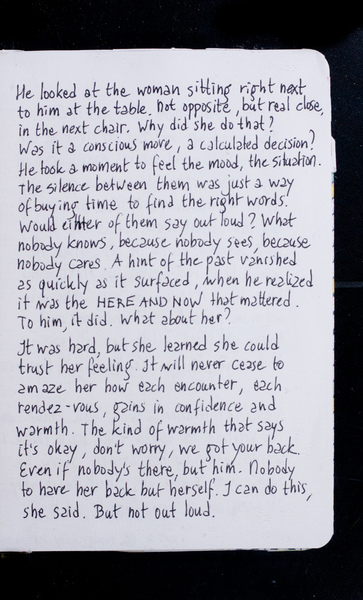 He looked at the woman sitting right next
to him at the table. Not opposite, but real close,
in the next chair. Why did she do that?
Was it a conscious move, a calculated decision?
He took a moment to feel the mood, the situation.
The silence between them was just a way
of buying time to find the right words.
Would either of them say out loud? What
nobody knows, because nobody sees, because
nobody cares. A hint of the past vanished
as quickly as it surfaced, when he realized
it was the HERE AND NOW that mattered.
To him, it did. What about her?
It was hard, but she learned she could
trust her feeling. It will never cease to
amaze her how each encounter, each
rendez-vous, gains in confidence and
warmth. The kind of warmth that says
it's okay, don't worry, we got your back.
Even if nobody's there, but him. Nobody
to have her back but herself. I can do this,
she said. But not out loud.